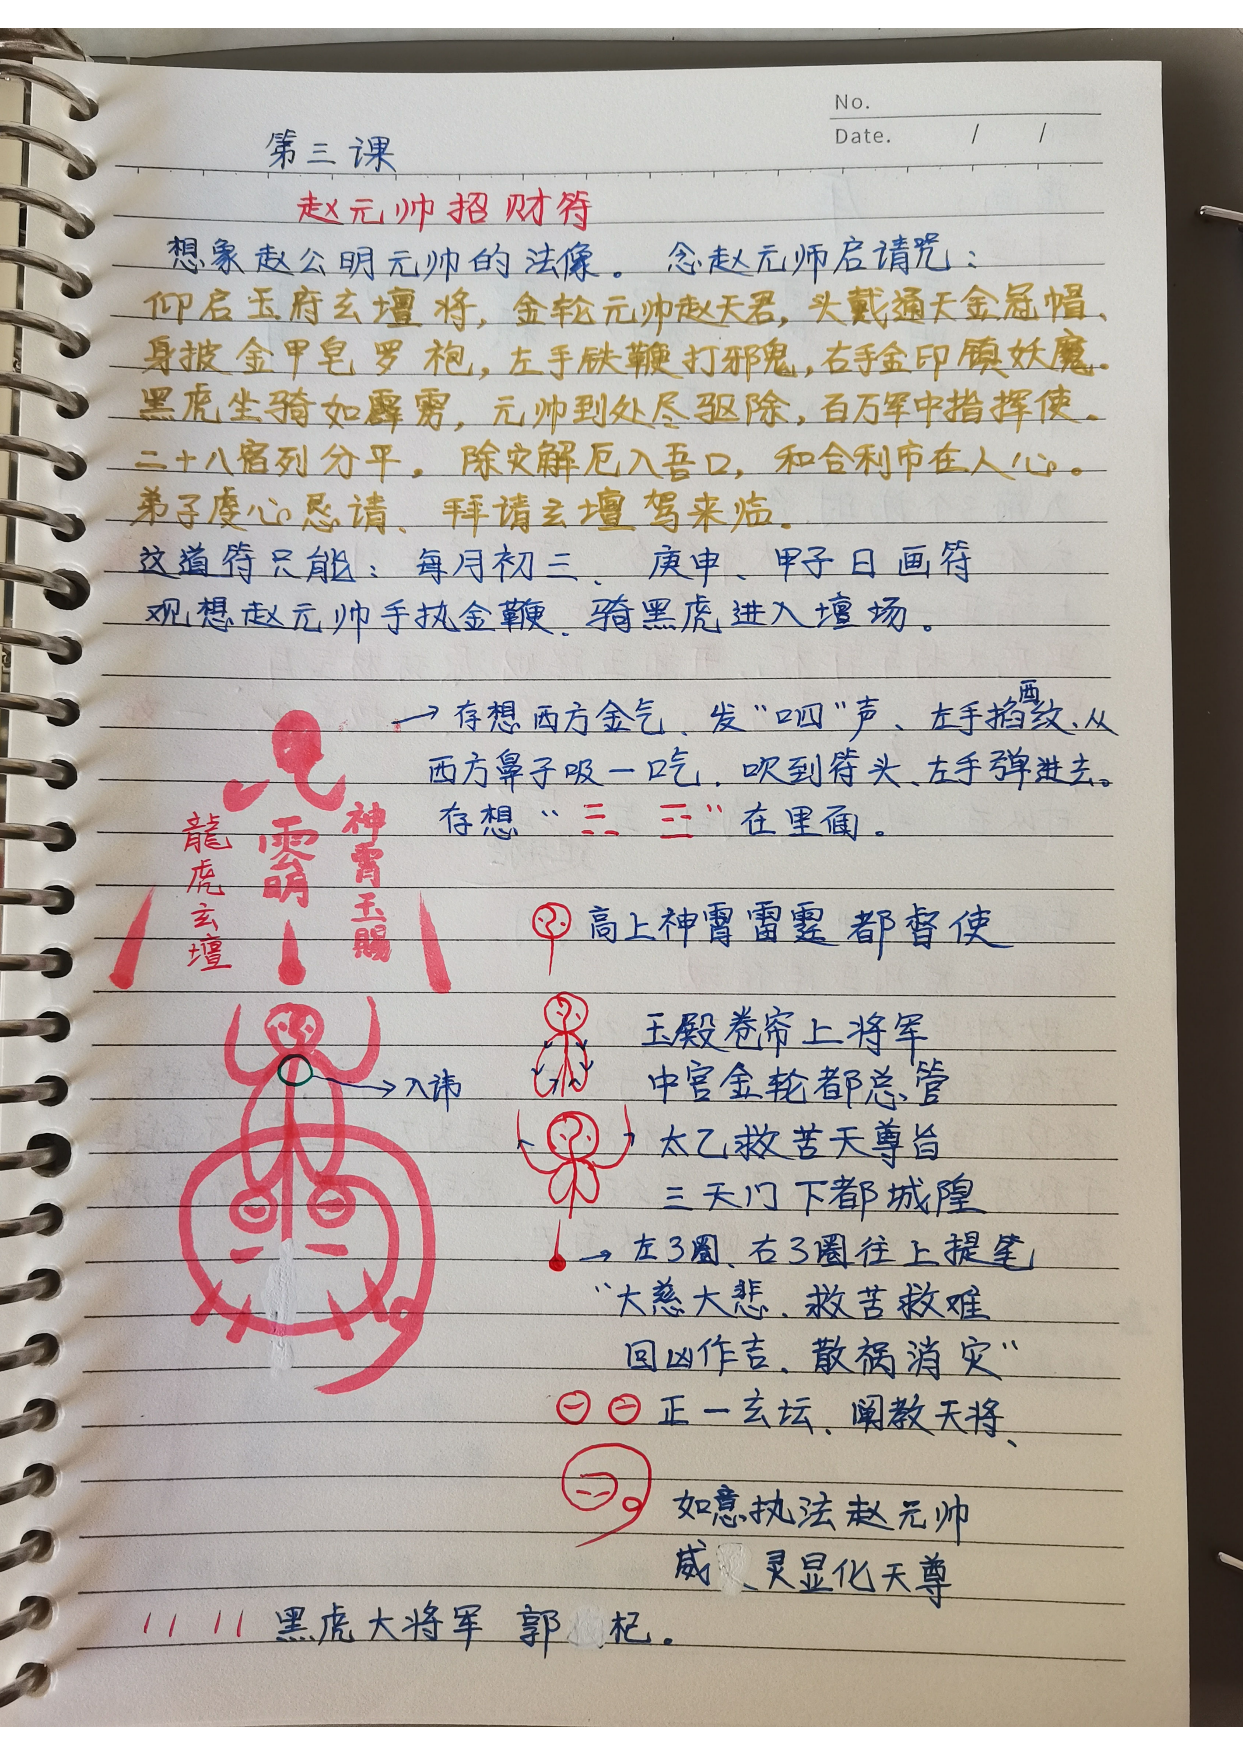 No.
Date. / /
第三课
赵元帅招财符
想象赵公明元帅的法像。 念赵元师启请咒：
仰启玉府玄壇将，金轮元帅赵天君，头戴通天金冠帽、
身披金甲皂罗袍，左手铁鞭打邪鬼，右手金印镇妖魔.
黑虎坐骑如霹雳，元帅到处尽驱除，百万军中指挥使.
二十八宿列分平。除灾解厄入吾口，和合利市在人心。
弟子虔心恳请、拜请玄壇驾来临.
这道符只能：每月初三、庚申、甲子日画符
观想赵元帅手执金鞭、骑黑虎进入壇场。
→存想西方金气、发“呬”声、左手掐酉纹、从
西方鼻子吸一口气、吹到符头、左手弹进去。
存想“三 三”在里面.
龍虎玄壇
神霄玉賜
高上神霄雷霆都督使
玉殿卷帘上将军
中宫金轮都总管
→入讳
太乙救苦天尊旨
三天门下都城隍
→左3圈、右3圈往上提笔
“大慈大悲、救苦救难
回凶作吉、散祸消灾“
正一玄坛、阐教天将、
如意执法赵元帅
威灵显化天尊
黑虎大将军 郭杞.